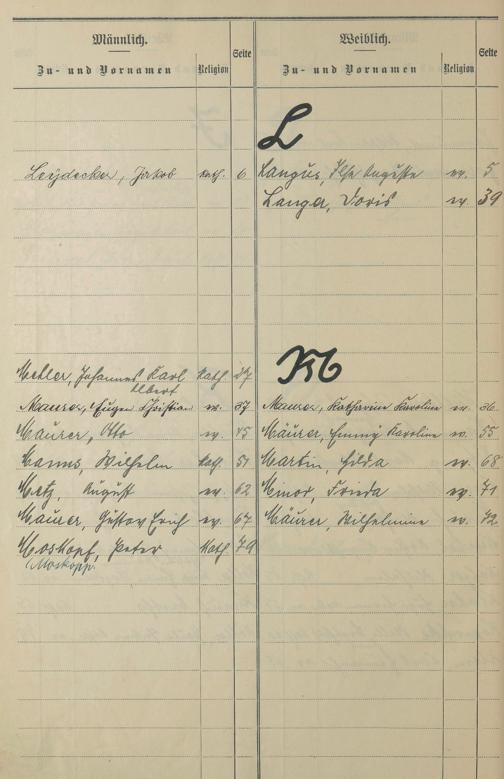 Männlich.
Zu- und Vornamen Religion Seite
Leydecker, Jakob kath. 6
Metler, Johannes Karl kath. 27
Albert
Maurer, Eugen Christian ev. 37
Maurer, Otto ev. 45
Manns, Wilhelm kath. 51
Metz, August ev. 62
Maurer, Gustav Erich ev. 67
Moskopf, Peter kath. 79
Moskopp.
Weiblich.
Zu- und Vornamen Religion Seite
L
Langus, Ilse Auguste ev. 5
Langer, Doris ev. 39
M
Maurer, Katharine Karoline ev. 36
Mäurer, Emmy Karoline ev. 55
Martin, Hilda ev. 68
Minor, Frieda ev. 71
Mäurer, Wilhelmine ev. 72